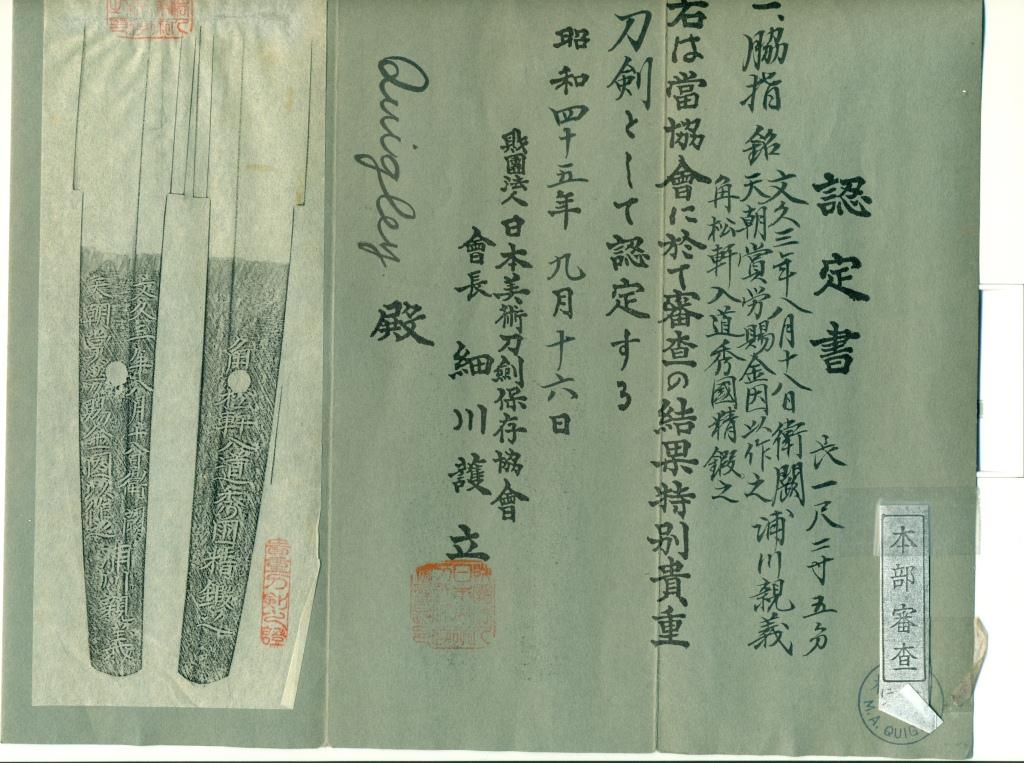 認定書
一、脇指 銘 長一尺二寸五分
文久三年八月十八日衛闕 浦川親義
天朝賞労賜金因以作之
角松軒入道秀國精鍛之
右は當協會に於て審査の結果特別貴重
刀剣として認定する
昭和四十五年 九月十六日
財團法人 日本美術刀劍保存協會
會長 細川護立
Quigley 殿
本部審査
M.A. QUIG
貴重刀剣之證
角松軒入道秀國精鍛之
文久三年八月十八日衛闕
天朝賞労賜金因以作之 浦川親義